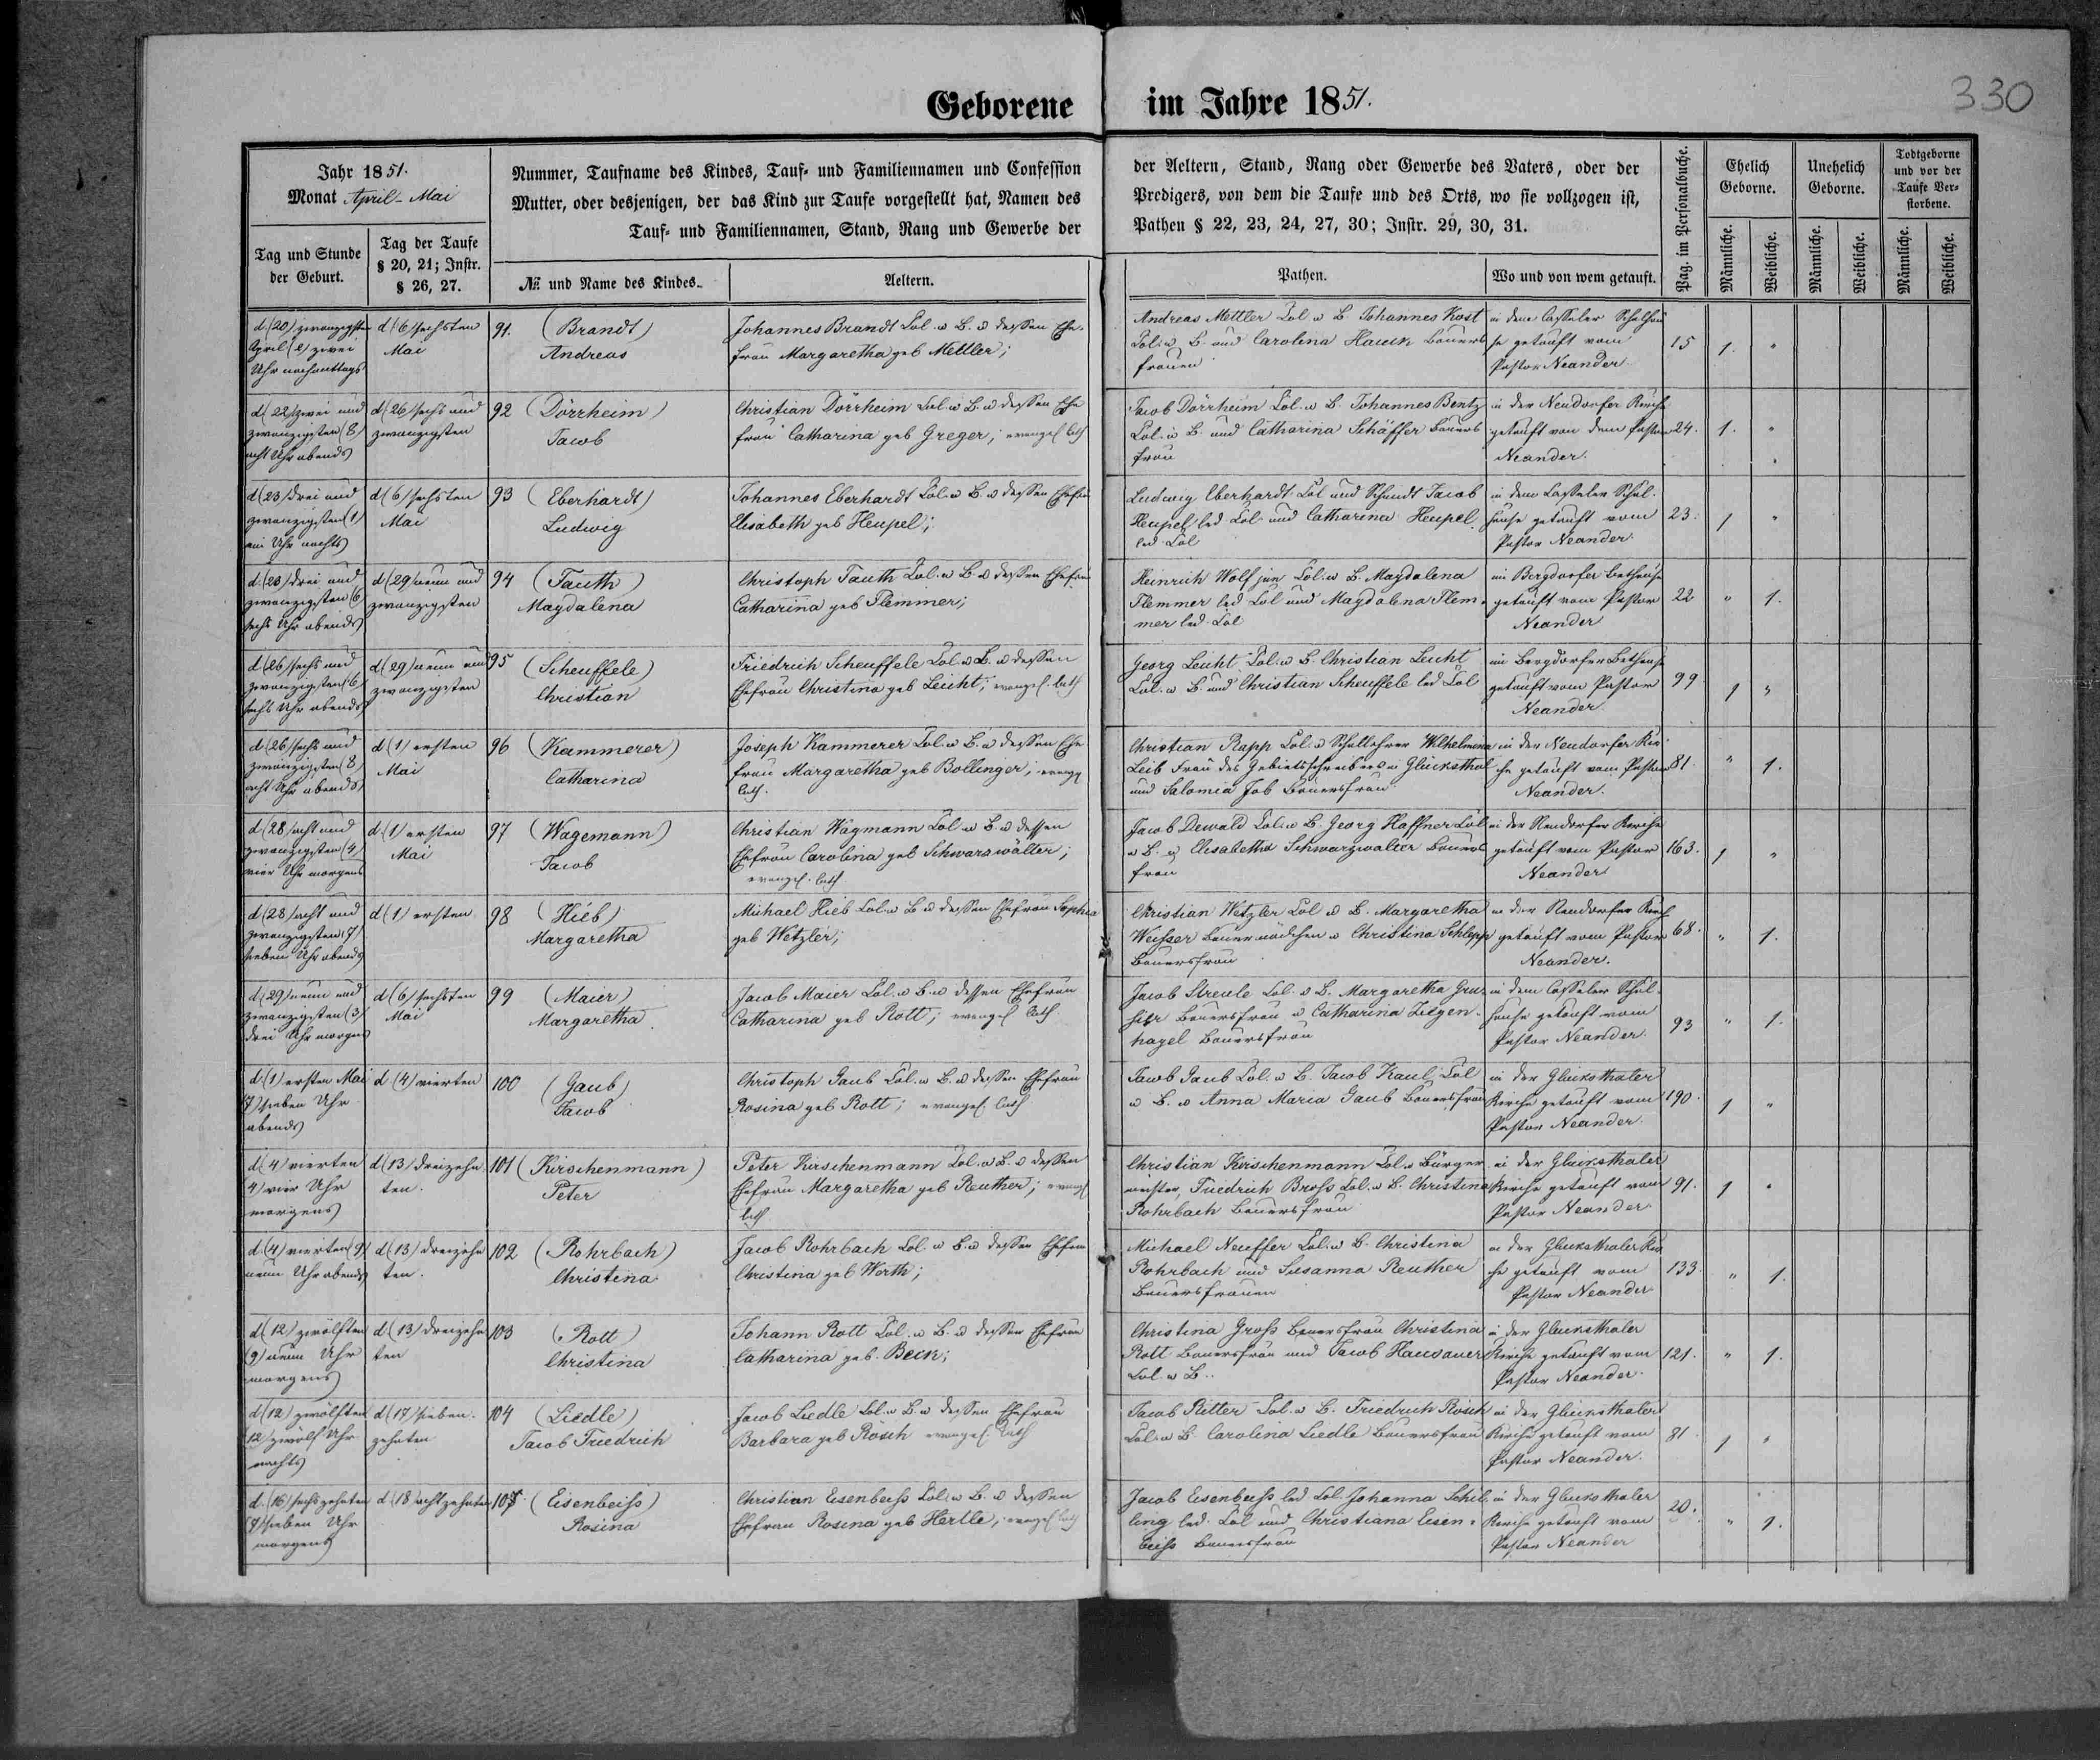 330
Geborene im Jahre 1851.
Jahr 1851.
Monat April - Mai
Tag und Stunde
der Geburt.
Tag der Taufe
§ 20, 21; Instr.
§ 26, 27.
Nummer, Taufname des Kindes, Tauf- und Familiennamen und Confession
Mutter, oder desjenigen, der das Kind zur Taufe vorgestellt hat, Namen des
Tauf- und Familiennamen, Stand, Rang und Gewerbe der
№ und Name des Kindes.
Aeltern.
der Aeltern, Stand, Rang oder Gewerbe des Vaters, oder der
Predigers, von dem die Taufe und des Orts, wo sie vollzogen ist,
Pathen § 22, 23, 24, 27, 30; Instr. 29, 30, 31.
Pathen.
Wo und von wem getauft.
Pag. im Personalbuche.
Ehelich
Geborne.
Unehelich
Geborne.
Todtgeborne
und vor der
Taufe Ver-
storbene.
Männliche.
Weibliche.
Männliche.
Weibliche.
Männliche.
Weibliche.
d. (20) zwanzigsten
April (2) zwei
Uhr nachmittags
d (6) sechsten
Mai
91. (Brandt)
Andreas
Johannes Brandt Col. u. B. u dessen Ehe-
frau Margaretha geb Mettler;
Andreas Mettler Col u B. Johannes Kost
Col. u. B. und Carolina Hauck Bauers
frauen
in dem Casseler Schulhau
se getauft vom
Pastor Neander.
15
1. "
d (22) zwei und
zwanzigsten (8)
acht Uhr abends
d (26) sechs und
zwanzigsten
92 (Dörrheim)
Jacob
Christian Dörrheim Col. u B. u dessen Ehe
frau Catharina geb Greger; evangel luth
Jacob Dörrheim Col. u B. Johannes Bentz
Col. u B. und Catharina Schäffer Bauers
frau
in der Neudorfer Kirche
getauft von dem Pastor
Neander.
24.
1. "
d (23) drei und
zwanzigsten (1)
ein Uhr nachts
d (6) sechsten
Mai
93 (Eberhardt)
Ludwig
Johannes Eberhardt Col. u B. u dessen Ehefrau
Elisabeth geb Heupel;
Ludwig Eberhardt Col und Schmidt Jacob
Heupel led Col und Catharina Heupel
led Col
in dem Casseler Schul-
hause getauft vom
Pastor Neander.
23.
1 "
d. (23) drei und
zwanzigsten (6
sechs Uhr abends
d (29) neun und
zwanzigsten
94 (Fauth)
Magdalena
Christoph Fauth Col. u B u dessen Ehefrau
Catharina geb Flemmer;
Heinrich Wolf jun Col. u B. Magdalena
Flemmer led Col und Magdalena Flem-
mer led. Col
im Bergdorfer Bethause
getauft vom Pastor
Neander
22
" 1.
d (26) sechs und
zwanzigsten (6
sechs Uhr abends)
d (29) neun und
zwanzigsten
95 (Scheuffele)
Christian
Friedrich Scheuffele Col u B. u dessen
Ehefrau Christina geb Leicht; evangel. luth
Georg Leicht Col. u B. Christian Leicht
Col. u B. und Christian Scheuffele led Col
im Bergdorfer Bethause
getauft vom Pastor
Neander.
99
1 "
d (26) sechs und
zwanzigsten (8)
acht Uhr abends)
d (1) ersten
Mai
96 (Kammerer)
Catharina
Joseph Kammerer Col. u B. u dessen Ehe
frau Margaretha geb Bollinger; evangel
luth.
Christian Rapp Col. u Schullehrer Wilhelmina
Leib Frau des Gebietsschreibers in Glücksthal
und Salomia Job Bauersfrau
in der Neudorfer Kir-
che getauft vom Pastor
Neander.
81.
" 1.
d (28) acht und
zwanzigsten (4)
vier Uhr morgens
d. (1) ersten
Mai
97 (Wagemann)
Jacob
Christian Wagmann Col u B. u dessen
Ehefrau Carolina geb Schwarzwälter;
evangel. luth
Jacob Dewald Col. u B. Georg Haffner Col
u B. u Elisabetha Schwarzwalter Bauers
frau
in der Neudorfer Kirche
getauft vom Pastor
Neander
163.
1 "
d (28) acht und
zwanzigsten (7)
sieben Uhr abends
d (1) ersten
98 (Hieb)
Margaretha
Michael Hieb Col. u B. u dessen Ehefrau Sophia
geb Wetzler;
Christian Wetzler Col u B. Margaretha
Weisser Bauermädchen u Christina Schlepp
Bauersfrau
in der Neudorfer Kirch
getauft vom Pastor
Neander.
68.
" 1.
d. (29) neun und
zwanzigsten (3)
drei Uhr morgens
d (6) sechsten
Mai
99 (Maier)
Margaretha
Jacob Maier Col. u B. u dessen Ehefrau
Catharina geb Rott; evangel luth.
Jacob Streule Col. u B. Margaretha
Bauersfrau u Catharina Ziegen-
hagel Bauersfrau
in dem Casseler Schul-
hause getauft vom
Pastor Neander.
93
" 1.
d. (1) ersten Mai
7) sieben Uhr
abends
d (4) vierten
100 (Gaub)
Jacob
Christoph Gaub Col. u B. u dessen Ehefrau
Rosina geb Rott; evangel luth
Jacob Gaub Col. u B. Jacob Kaul Col
u B. u Anna Maria Gaub Bauersfrau
in der Glücksthaler
Kirche getauft vom
Pastor Neander.
190.
1 "
d (4) vierten
4) vier Uhr
morgens)
d (13) dreizehn-
ten.
101 (Kirschenmann)
Peter
Peter Kirschenmann Col. u B. u dessen
Ehefrau Margaretha geb Reuther; evangel
luth
Christian Kirschenmann Col. u Bürger-
meister, Friedrich Bross Col. u B. Christina
Rohrbach Bauersfrau
in der Glücksthaler
Kirche getauft vom
Pastor Neander
91.
1 "
d (4) vierten (9)
neun Uhr abends
d (13) dreizehn
ten.
102 (Rohrbach)
Christina
Jacob Rohrbach Col u B. u dessen Ehefrau
Christina geb Werth;
Michael Neuffer Col. u B. Christina
Rohrbach und Susanna Reuther
Bauersfrauen
in der Glücksthaler Kir
che getauft vom
Pastor Neander
133.
" 1.
d (12) zwölften
(9) neun Uhr
morgens)
d. (13) dreizehn
ten
103 (Rott)
Christina
Johann Rott Col. u B. u dessen Ehefrau
Catharina geb. Beck;
Christina Gross Bauersfrau Christina
Rott Bauersfrau und Jacob Hausauer
Col. u B..
in der Glücksthaler
Kirche getauft vom
Pastor Neander.
121.
" 1.
d (12) zwölften
(12) zwölf Uhr
nachts)
d (17) sieben-
zehnten
104 (Liedle)
Jacob Friedrich
Jacob Liedle Col. u B. u dessen Ehefrau
Barbara geb Rösch evangel. luth
Jacob Ritter Col. u B. Friedrich Rösch
Col. u B. Carolina Liedle Bauersfrau
in der Glücksthaler
Kirche getauft vom
Pastor Neander.
81
1 "
d. (16) sechszehnten
(7) sieben Uhr
morgens
d (18) achtzehnten
105 (Eisenbeiss)
Rosina
Christian Eisenbeiss Col. u B. u dessen
Ehefrau Rosina geb Hertle; evangel luth
Jacob Eisenbeiss led Col. Johanna Schil-
ling led. Col und Christiana Eisen-
beiss Bauersfrau
in der Glücksthaler
Kirche getauft vom
Pastor Neander
20.
" 1.